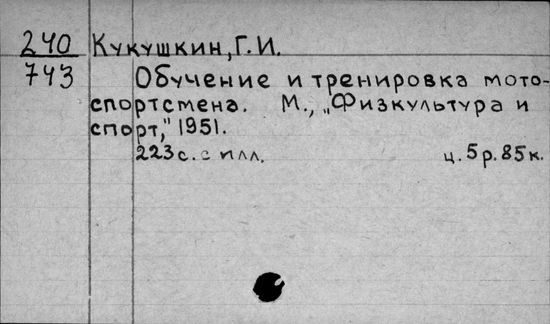 240 Кукушкин, Г. И.
743 Обучение и тренировка мото-
спортсмена. М., „Физкультура и
спорт," 1951.
223 с. с илл. ц. 5 р. 85 к.